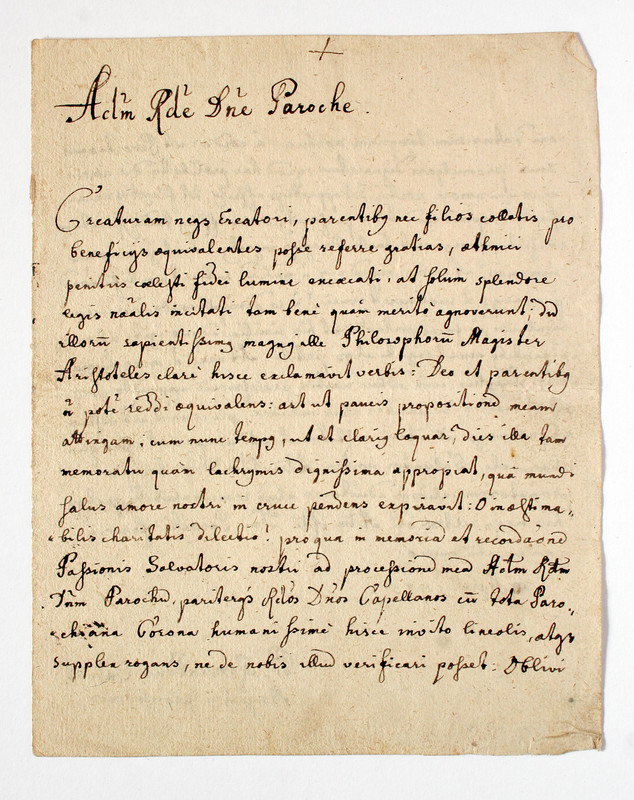 Adm̃ Rdẽ Dñe Paroche.
Creaturam neqз Creatori, parentibꝫ nec filios collatis pro
beneficijs æquivalentes posse referre gratias, æthnici
penitùs cælesti fidei lumine encæcati, at solum splendore
legis nãalis incitati tam benè quàm meritò agnoverunt; dũ
illorũ sapientissimꝫ magnꝫ ille Philosophorũ Magister
Aristoteles clarè hisce exclamavit verbis: Deo et parentibꝫ
ñ potẽ reddi æquivalens: ast ut paucis propositionẽ meam
attingam; cum nunc tempꝫ, ut et clariꝫ loquar, dies illa tam
memoratu quàm lachrymis dignissima appropiat, quâ mundi
salus amore nostri in cruce pendens expiravit: O inæstima„
„bilis charitatis dilectio! pro qua in memoriã et recordãonẽ
Passionis Salvatoris nostri ad processionẽ meã Adm̃ Rdm̃
Dñm Parochũ, pariterqз Rdõs Dños Capellanos cũ tota Paro„
„chiana Corona humanissimè hisce invito lineolis, atqз
supplex rogans, ne de nobis illud verificari posset: Oblivi